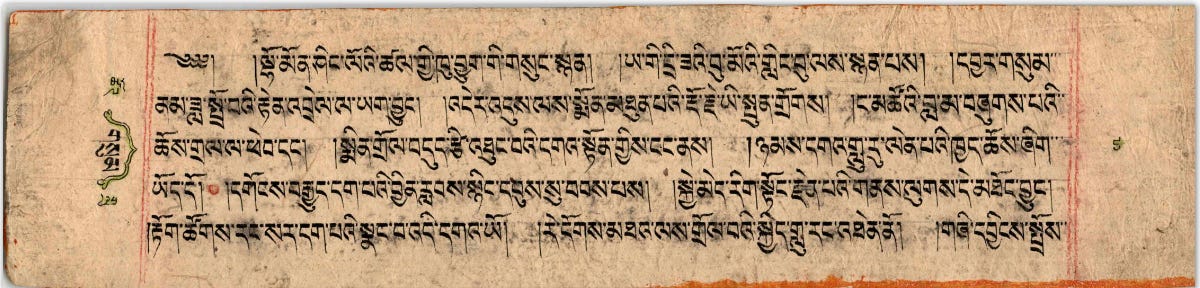 ༄༅། །སྟོ་མོན་ཤིང་ལོའི་ཚལ་གྱི་ཁུ་བྱུག་གི་གསུང་སྙན། །ཡ་གི་དྲི་ཟའི་བུ་མོའི་གླིང་བུ་ལས་སྙན་པས། །དབྱར་གསུམ་
ནམ་ཟླ་སྤྲོ་བའི་རྟེན་འབྲེལ་ལ་ཡག་བྱུང། །འདིར་འདུས་ལས་སྨོན་མཐུན་པའི་རྡོ་རྗེ་ཡི་སྤུན་གྲོགས། །ང་མཚོའི་བླ་མ་བཞུགས་པའི་
ཆོས་གྲལ་ལ་ཕེབ་དང་ །སྨིན་གྲོལ་བདུད་རྩི་འཐུང་བའི་དགའ་སྟོན་གྱིས་ངང་ནས། །ཉམས་དགའ་གླུ་རུ་ལེན་པའི་ཁྱད་ཆོས་ཞིག་
ཡོད་དོ། །དགོངས་བརྒྱུད་དག་པའི་བྱིན་རླབས་སྙིང་དབུས་སུ་བབས་པས། །སྐྱེ་མེད་རིག་སྟོང་རྗེན་པའི་གནས་ལུགས་དེ་མཐོང་བྱུང
།རྟོག་ཚོགས་རང་སར་དག་པའི་སྣང་བ་འདི་དགའ་ཡོ། །རེ་དོགས་མཐའ་ལས་གྲོལ་བའི་སྐྱིད་གླུ་རང་འཐེན་ནོ། །གཞི་དབྱིངས་སྤྲོས་